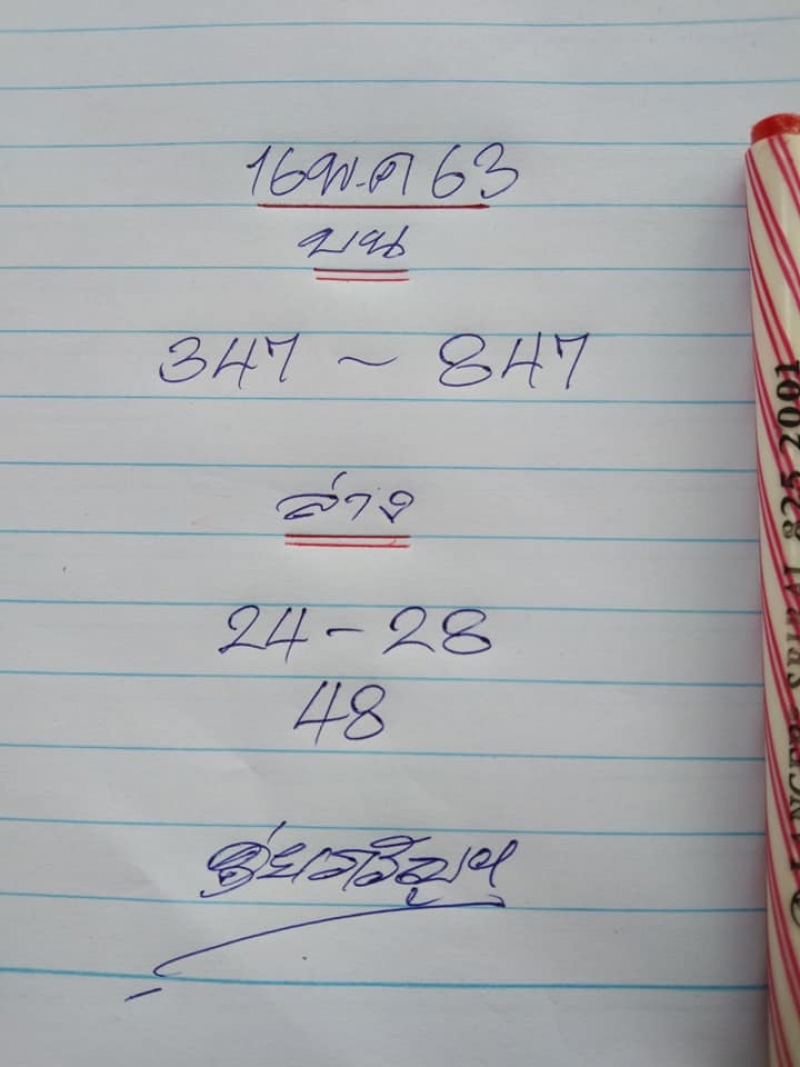 16 พ.ค 63
บน
347 ~ 847
ล่าง
24 - 28
48
LANCER SPIRAL 825 2001